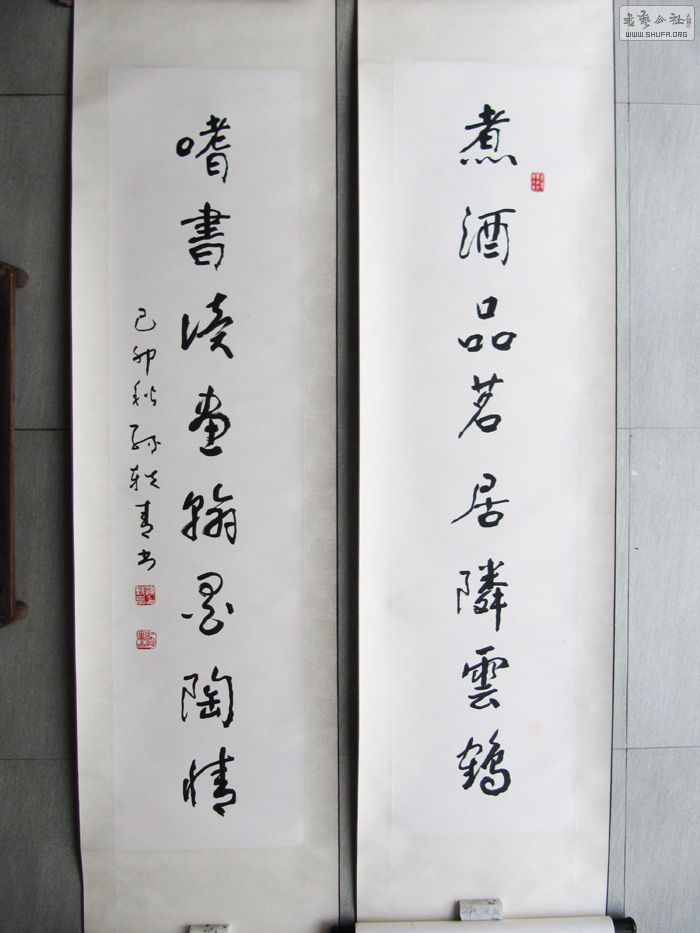 煮酒品茗居隣雲鶴
嗜書读畫翰墨陶情
己卯秋孫轶青书
书艺公社
WWW.SHUFA.ORG